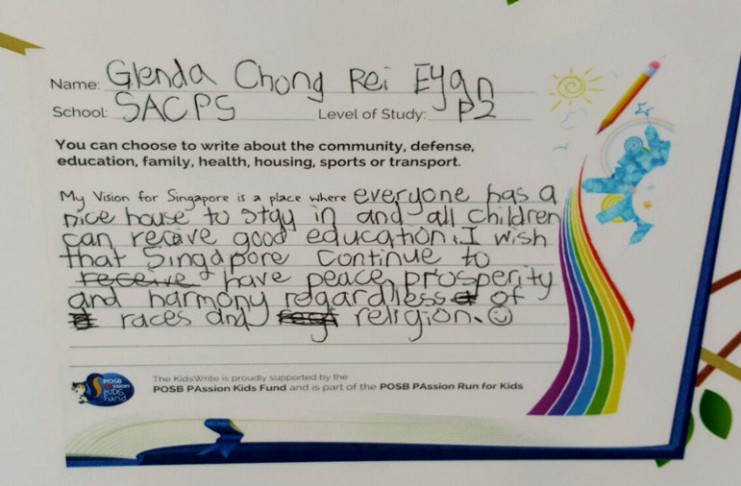 Name: Glenda Chong Rei Eyan
School: SACPS Level of Study: P2
You can choose to write about the community, defense,
education, family, health, housing, sports or transport.
My Vision for Singapore is a place where everyone has a
nice house to stay in and all children
can receive good education. I wish
that Singapore continue to
receive have peace, prosperity
and harmony regardless of
races and religion.
POSB
PAssion
KIDS
Fund
The KidsWrite is proudly supported by the
POSB PAssion Kids Fund and is part of the POSB PAssion Run for Kids